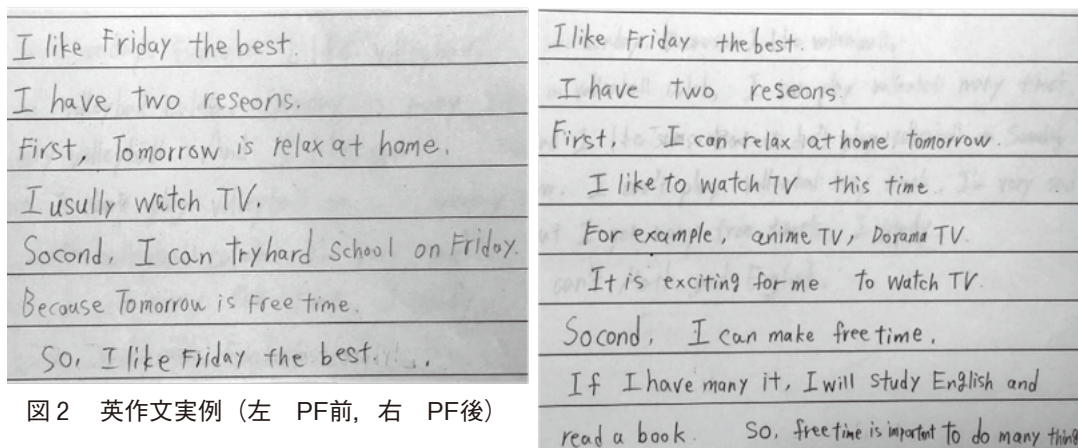 I like Friday the best.
I have two reseons.
First, Tomorrow is relax at home.
I usully watch TV.
Socond, I can tryhard school on Friday.
Becouse Tomorrow is Free time.
So, I like Friday the best.
図2 英作文実例（左 PF前，右 PF後）
I like Friday the best.
I have two reseons.
First, I can relax at home tomorrow.
I like to watch TV this time.
For example, anime TV, Dorama TV.
It is exciting for me to watch TV.
Socond, I can make free time.
If I have many it, I will study English and
read a book. So, free time is important to do many thing